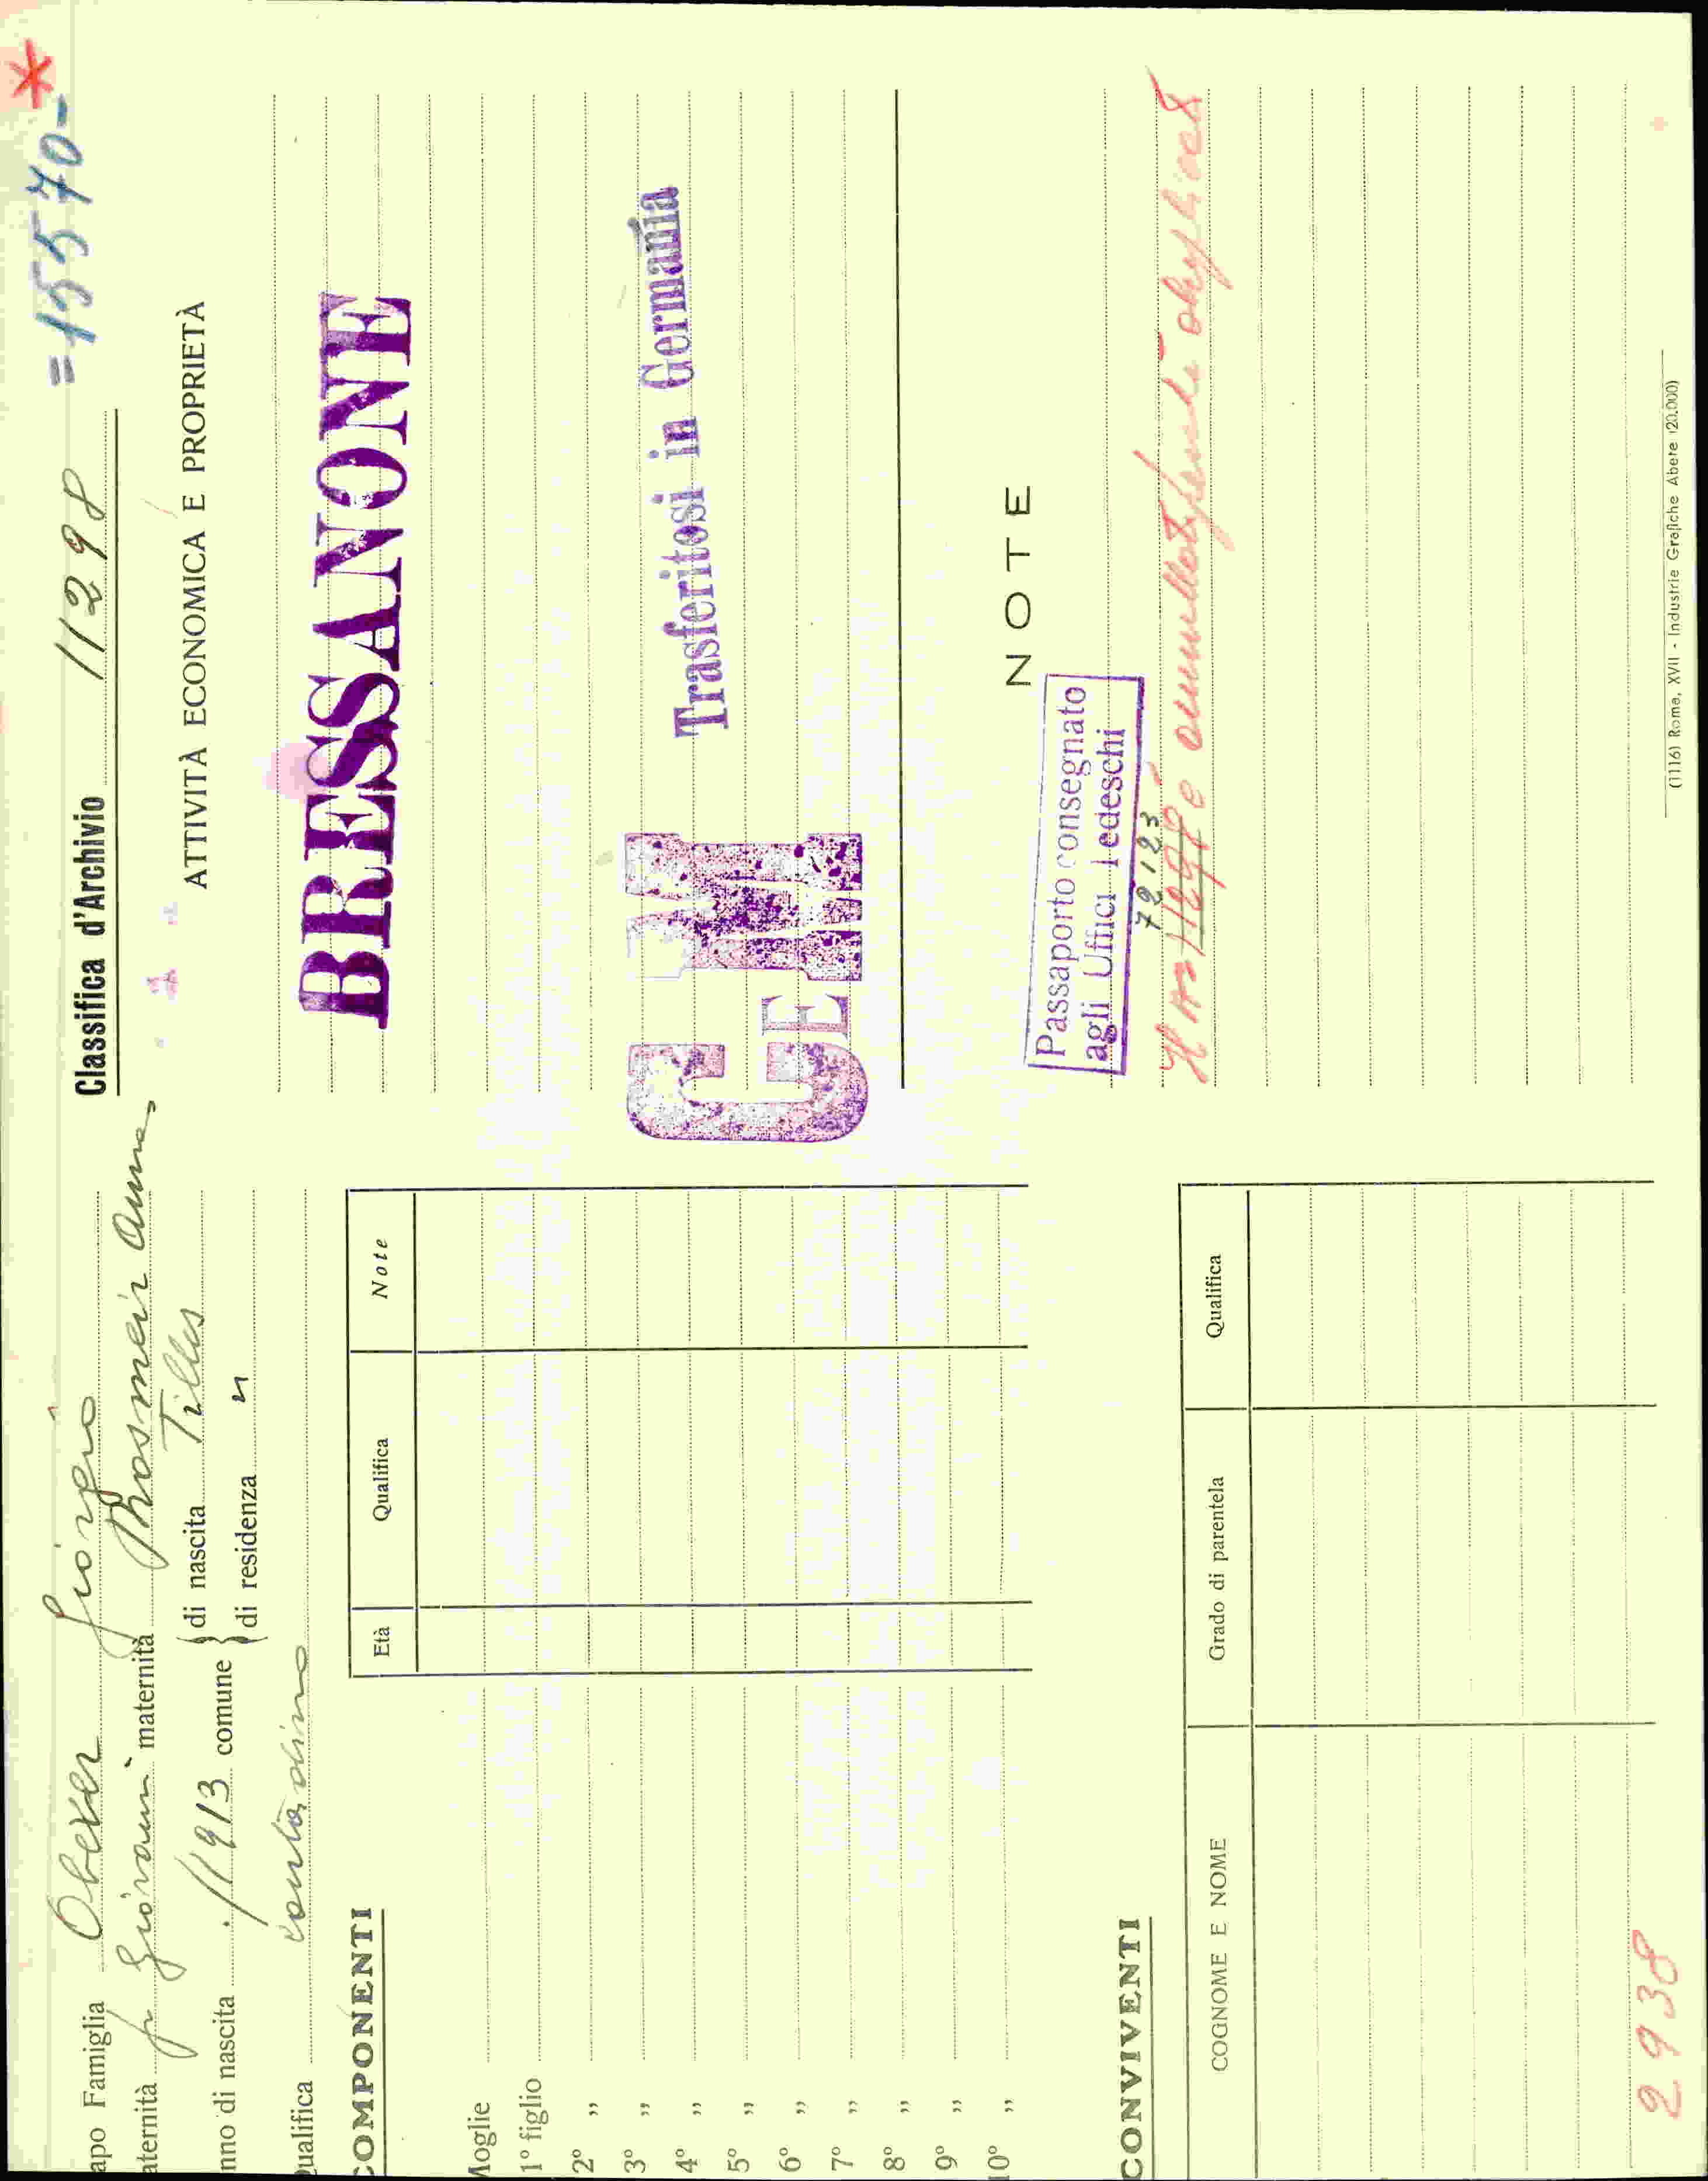 Capo Famiglia Obexer Giorgio
aternità fu Giovanni maternità Prosmeir Anna
nno di nascita 1913 comune di nascita Tilles
di residenza "
Qualifica contadino
COMPONENTI
Età Qualifica Note
Moglie
1° figlio
2° „
3° „
4° „
5° „
6° „
7° „
8° „
9° „
10° „
CONVIVENTI
COGNOME E NOME Grado di parentela Qualifica
2938
Classifica d'Archivio 11298 =15570- *
ATTIVITÀ ECONOMICA E PROPRIETÀ
BRESSANONE
Trasferitosi in Germania
CEM
NOTE
Passaporto consegnato
agli Uffici Tedeschi
72123
è annullato
(1116) Roma, XVII - Industrie Grafiche Abete (20.000)